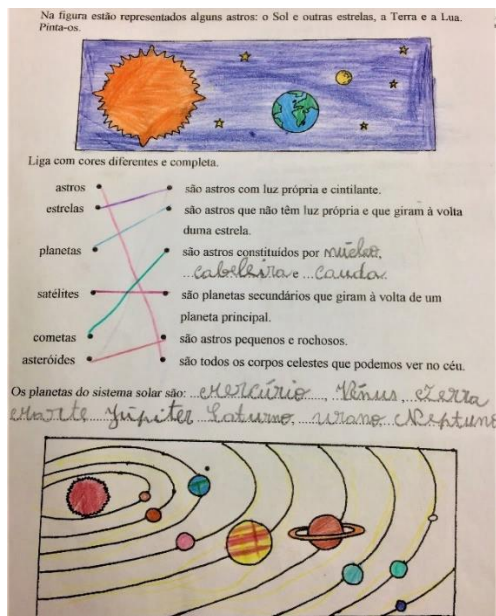 Na figura estão representados alguns astros: o Sol e outras estrelas, a Terra e a Lua.
Pinta-os.
Liga com cores diferentes e completa.
astros
são astros com luz própria e cintilante.
estrelas
são astros que não têm luz própria e que giram à volta
duma estrela.
planetas
são astros constituídos por núcleo,
cabeleira e cauda.
satélites
são planetas secundários que giram à volta de um
planeta principal.
cometas
são astros pequenos e rochosos.
asteróides
são todos os corpos celestes que podemos ver no céu.
Os planetas do sistema solar são: Mercúrio, Vénus, Terra
Marte Júpiter Saturno, Urano Neptuno